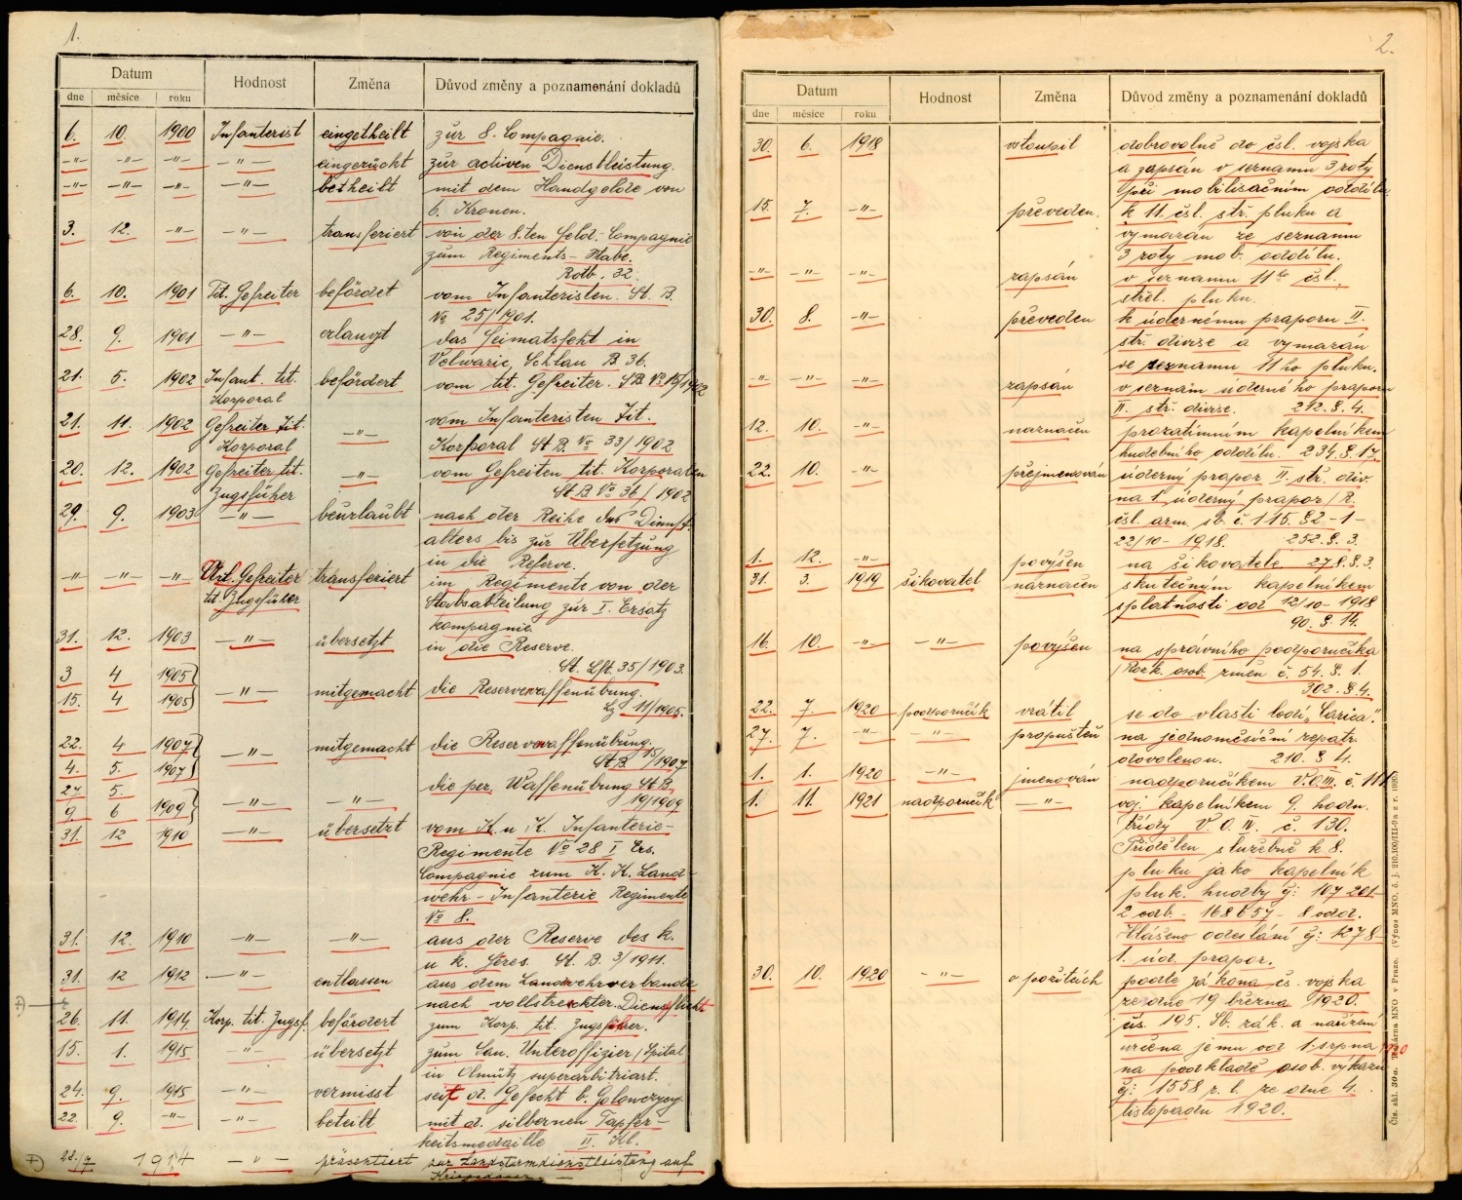 1.
Datum
Hodnost
Změna
Důvod změny a poznamenání dokladů
dne
měsíce
roku
6. 10. 1900 Infanterist eingetheilt zur 8. Compagnie.
-"- -"- -"- -"- eingerückt zur activen Dienstleistung.
-"- -"- -"- -"- betheilt mit dem Handgelde von
6. Kronen.
3. 12. -"- -"- transferiert von der 8.ten Feld. Compagnie
zum Regiments-Stabe.
Rotb. 32.
6. 10. 1901 Tit. Gefreiter befördet vom Infanteristen. St. B.
No 25/1901.
28. 9. 1901 -"- erlangt das Heimatsrecht in
Velwarie, Schlau B 36.
21. 5. 1902 Infant. tit. befördert vom tit. Gefreiter. StB. No 15/1902
Korporal
21. 11. 1902 Gefreiter tit. -"- vom Infanteristen tit.
Korporal Korporal St B. No 33/1902
20. 12. 1902 Gefreiter tit. -"- vom Gefreiten tit. Korporalen
Zugsfüher St B No 36/1902
29. 9. 1903 -"- beurlaubt nach der Reihe des Dienst-
alters bis zur Übersetzung
in die Reserve.
-"- -"- -"- Gefreiter transferiert im Regimente von der
tit. Zugsfürer Stabsabteilung zur I. Ersatz
kompagnie.
31. 12. 1903 -"- übersetzt in die Reserve.
35/1903.
3 4 1905 } -"- mitgemacht die Reservewaffenübung.
15. 4 1905 } 11/1905.
22. 4 1907 } -"- mitgemacht die Reservewaffenübung.
4. 5. 1907 } St B. 15/1907
27 5. die per. Waffenübung St B.
9. 6 1909 } -"- -"- 19/1909
31. 12 1910 -"- übersetzt vom K. u. K. Infanterie-
Regimente No 28 I Ers.
Compagnie zum K. K. Land-
wehr-Infanterie Regimente
No 8.
31. 12. 1910 -"- -"- aus der Reserve des k.
u k. Heres. St. B. 3/1911.
31. 12 1912 -"- entlassen aus dem Landwehrverbande
nach vollstreckter Dienstflicht
26. 11. 1914 Korp. tit. Zugsf. befördert zum Korp. tit. Zugsfürer.
15. 1. 1915 -"- übersetzt zum San. Unteroffizier/Spital
in Olmütz superarbitriert.
24. 9. 1915 -"- vermisst seit d. Gefecht b.
22. 9. -"- -"- beteilt mit d. silbernen Tapfer-
keitsmedaille II. Kl.
28./7 1914 -"- präsentiert zur Landsturmdienstleistung auf
Kriegsdauer
2.
Datum
Hodnost
Změna
Důvod změny a poznamenání dokladů
dne
měsíce
roku
30. 6. 1918 vstoupil dobrovolně do čsl. vojska
a zapsán v seznamu 3 roty
při mobilisačním oddílu.
15. 7. -"- převeden. k 11. čsl. stř. pluku a
vymazán ze seznamu
3 roty mob. oddílu.
-"- -"- -"- zapsán v seznamu 11ho čsl.
střel. pluku.
30. 8. -"- převeden k údernému praporu II.
str. divise a vymazán
ve seznamu 11 ho pluku.
-"- -"- -"- zapsán v seznam úderného praporu
II. stř. divise. 212. §. 4.
12. 10. -"- naznačen prozatímním kapelníkem
hudebního oddílu. 234. §. 17.
22. 10. -"- přejmenován úderný prapor II. stř. div.
na 1. úderný prapor/R.
čsl. arm. sb. č. 115. §2-1-
22/10-1918. 252. §. 3.
1. 12. -"- povýšen na šikovatele 278. §. 3.
31. 3. 1919 šikovatel naznačen skutečným kapelníkem
splatností od 12/10-1918
90. §. 14.
16. 10. -"- -"- povýšen na správního podporučíka
/Rozk. osob. změn č. 54. §. 1.
302. §. 4.
22. 7. 1920 podporučík vrátil se do vlasti lodí,
27. 7. -"- -"- propuštěn na jednoměsíční repatr.
dovolenou. 210. § 4.
1. 1. 1920 -"- jmenován nadporučíkem V.O.III. č 111.
1. 11. 1921 nadporučík -"- voj. kapelníkem 9. hodn.
třídy V. O. II. č. 130.
Přidělen služebně k 8.
pluku jako kapelník
pluk. hudby čj: 107 201
2 odb. - 168657 - 8 odd.
Hlášeno odeslání čj: 1278-
1. úd. prapor.
30. 10. 1920 -"- o požitcích podle zákona čs. vojska
ze dne 19 března 1920.
čís. 195. Sb. zák. a nařízení
určena jemu od 1. srpna 1920
na podkladě osob. výkazu
čj: 1558 z. l. ze dne 4.
listopadu 1920.
Čís. skl. 30a. Tiskárna MNO v Praze. (Výnos MNO. č. j. 210.100/III-9a z r. 1925.)